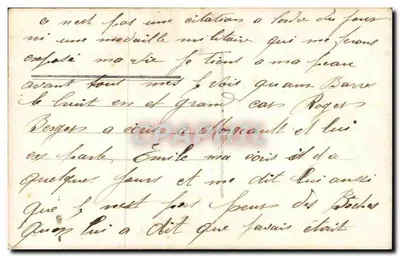 ce n'est pas une citation a l'ordre du jour
ni une medaille militaire qui me ferons
exposé ma vie je tiens a ma peau
avant tout mes je vois quans Barre
le bruit en et grand car Roger
Bergers a écris a et lui
en parle Emile ma écris il d a
quelques jours et me dit lui aussi
que n'est pas peur des Boches
on lui a dit que j'avais était